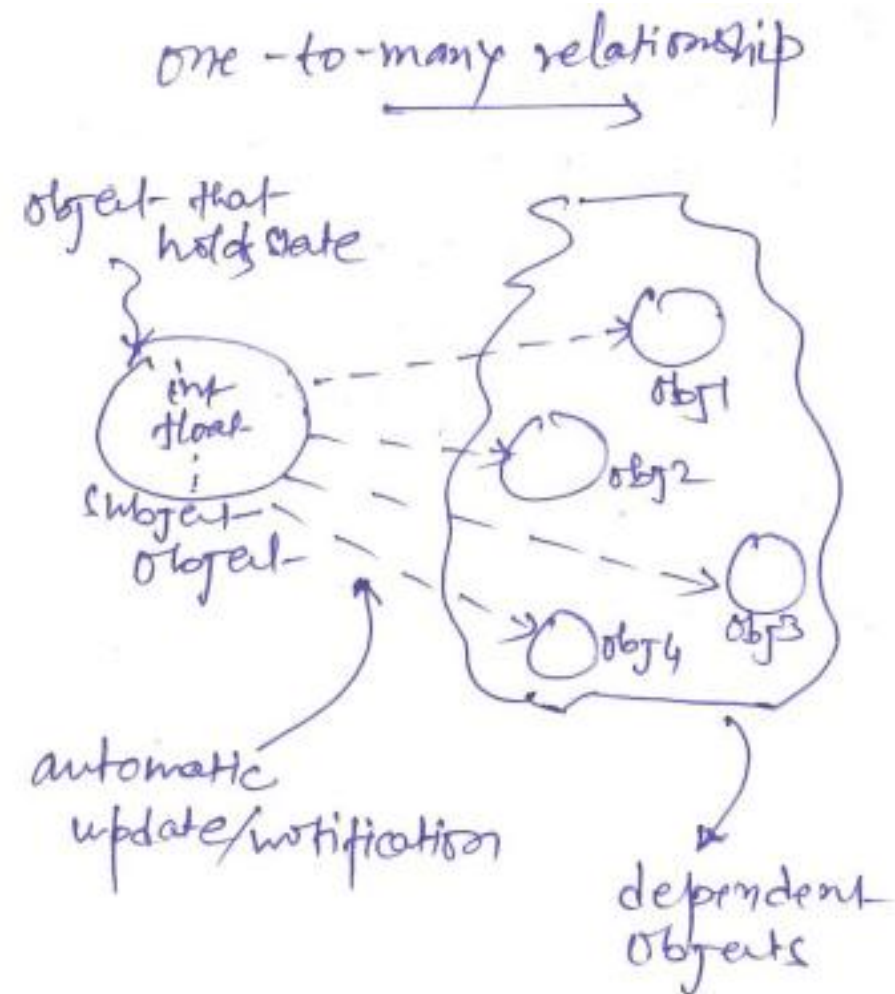 one-to-many relationship
object that
holds state
int
float
Subject
Object
obj1
obj2
obj3
obj4
automatic
update/notification
dependent
Objects